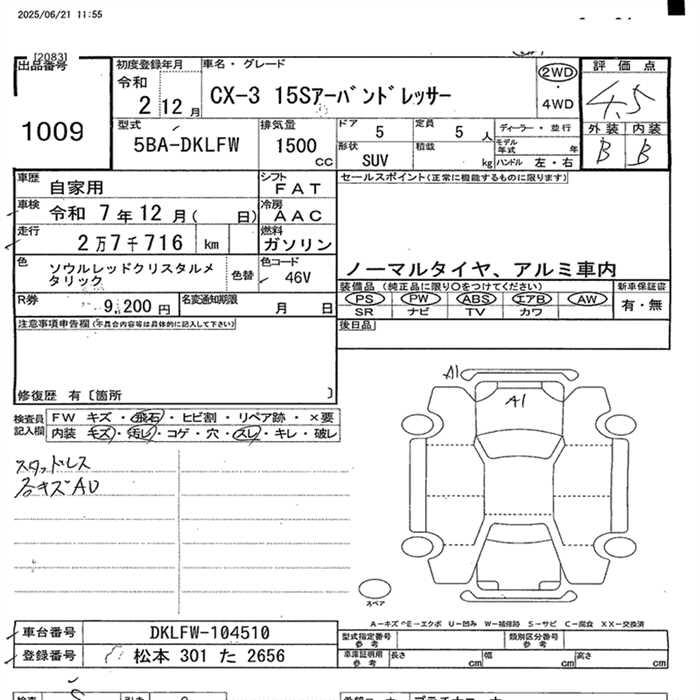 2025/06/21 11:55
[2083]
出品番号
1009
初度登録年月
令和
2 12 月
車名・グレード
CX-3 15Sアーバンドレッサー
2WD
・
4WD
評価点
4.5
外装 内装
B B
型式
5BA-DKLFW
排気量
1500
CC
ドア 5
定員 5 人
ディーラー・並行
形状
SUV
積載
kg
モデル年式 年
ハンドル 左・右
車歴
自家用
シフト
FAT
車検
令和 7年12月( 日)
冷房
AAC
走行
2万7千716 km
燃料
ガソリン
色
ソウルレッドクリスタルメタリック
色替
色コード
46V
R券
9,200円
名変通知期限
月 日
セールスポイント(正常に機能するものに限ります)
ノーマルタイヤ、アルミ車内
装備品(純正品に限り○をつけてください)
PS PW ABS エアB AW
SR ナビ TV カワ
新車保証書
有・無
後日品
注意事項申告欄(不具合内容等は具体的に記入して下さい)
修復歴 有〔箇所 〕
検査員
記入欄
FW キズ・飛石・ヒビ割・リペア跡・×要
内装 キズ・汚レ・コゲ・穴・スレ・キレ・破レ
スタッドレス
各キズAU
A1
A1
スペア
A-キズ E-エクボ U-凹み W-補修跡 S-サビ C-腐食 XX-交換済
車台番号
DKLFW-104510
登録番号
松本 301 た 2656
型式指定番号
参考
類別区分番号
参考
車庫証明用
参考
長さ cm
幅 cm
高さ cm